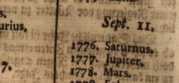 s.
urius.
Sept. 11.
1776. Saturnus.
1777. Jupiter.
7.
1778. Mars.